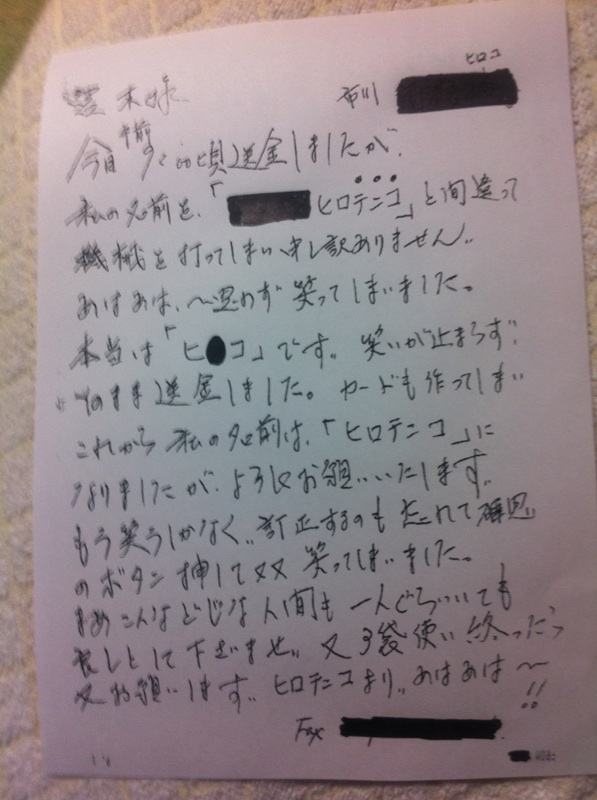 ヒロコ
木様 市川
今日午前 頃送金しましたが、
私の名前を、「 ヒロテニコ」と間違って
機械を打ってしまい申し訳ありません。
あはあは、〜思わず笑ってしまいました。
本当は「ヒ コ」です。笑いが止まらず
そのまま送金しました。カードも作ってしまい
これから私の名前は、「ヒロテニコ」に
なりましたが、よろしくお願いいたします。
もう笑うしかなく、訂正するのも忘れて確認
のボタン押して又又笑ってしまいました。
まあこんなどじな人間も一人ぐらいいても
良しとして下さいませ。又3袋使い終ったら
又お願いします。ヒロテニコより、あはあは〜!!
Fax